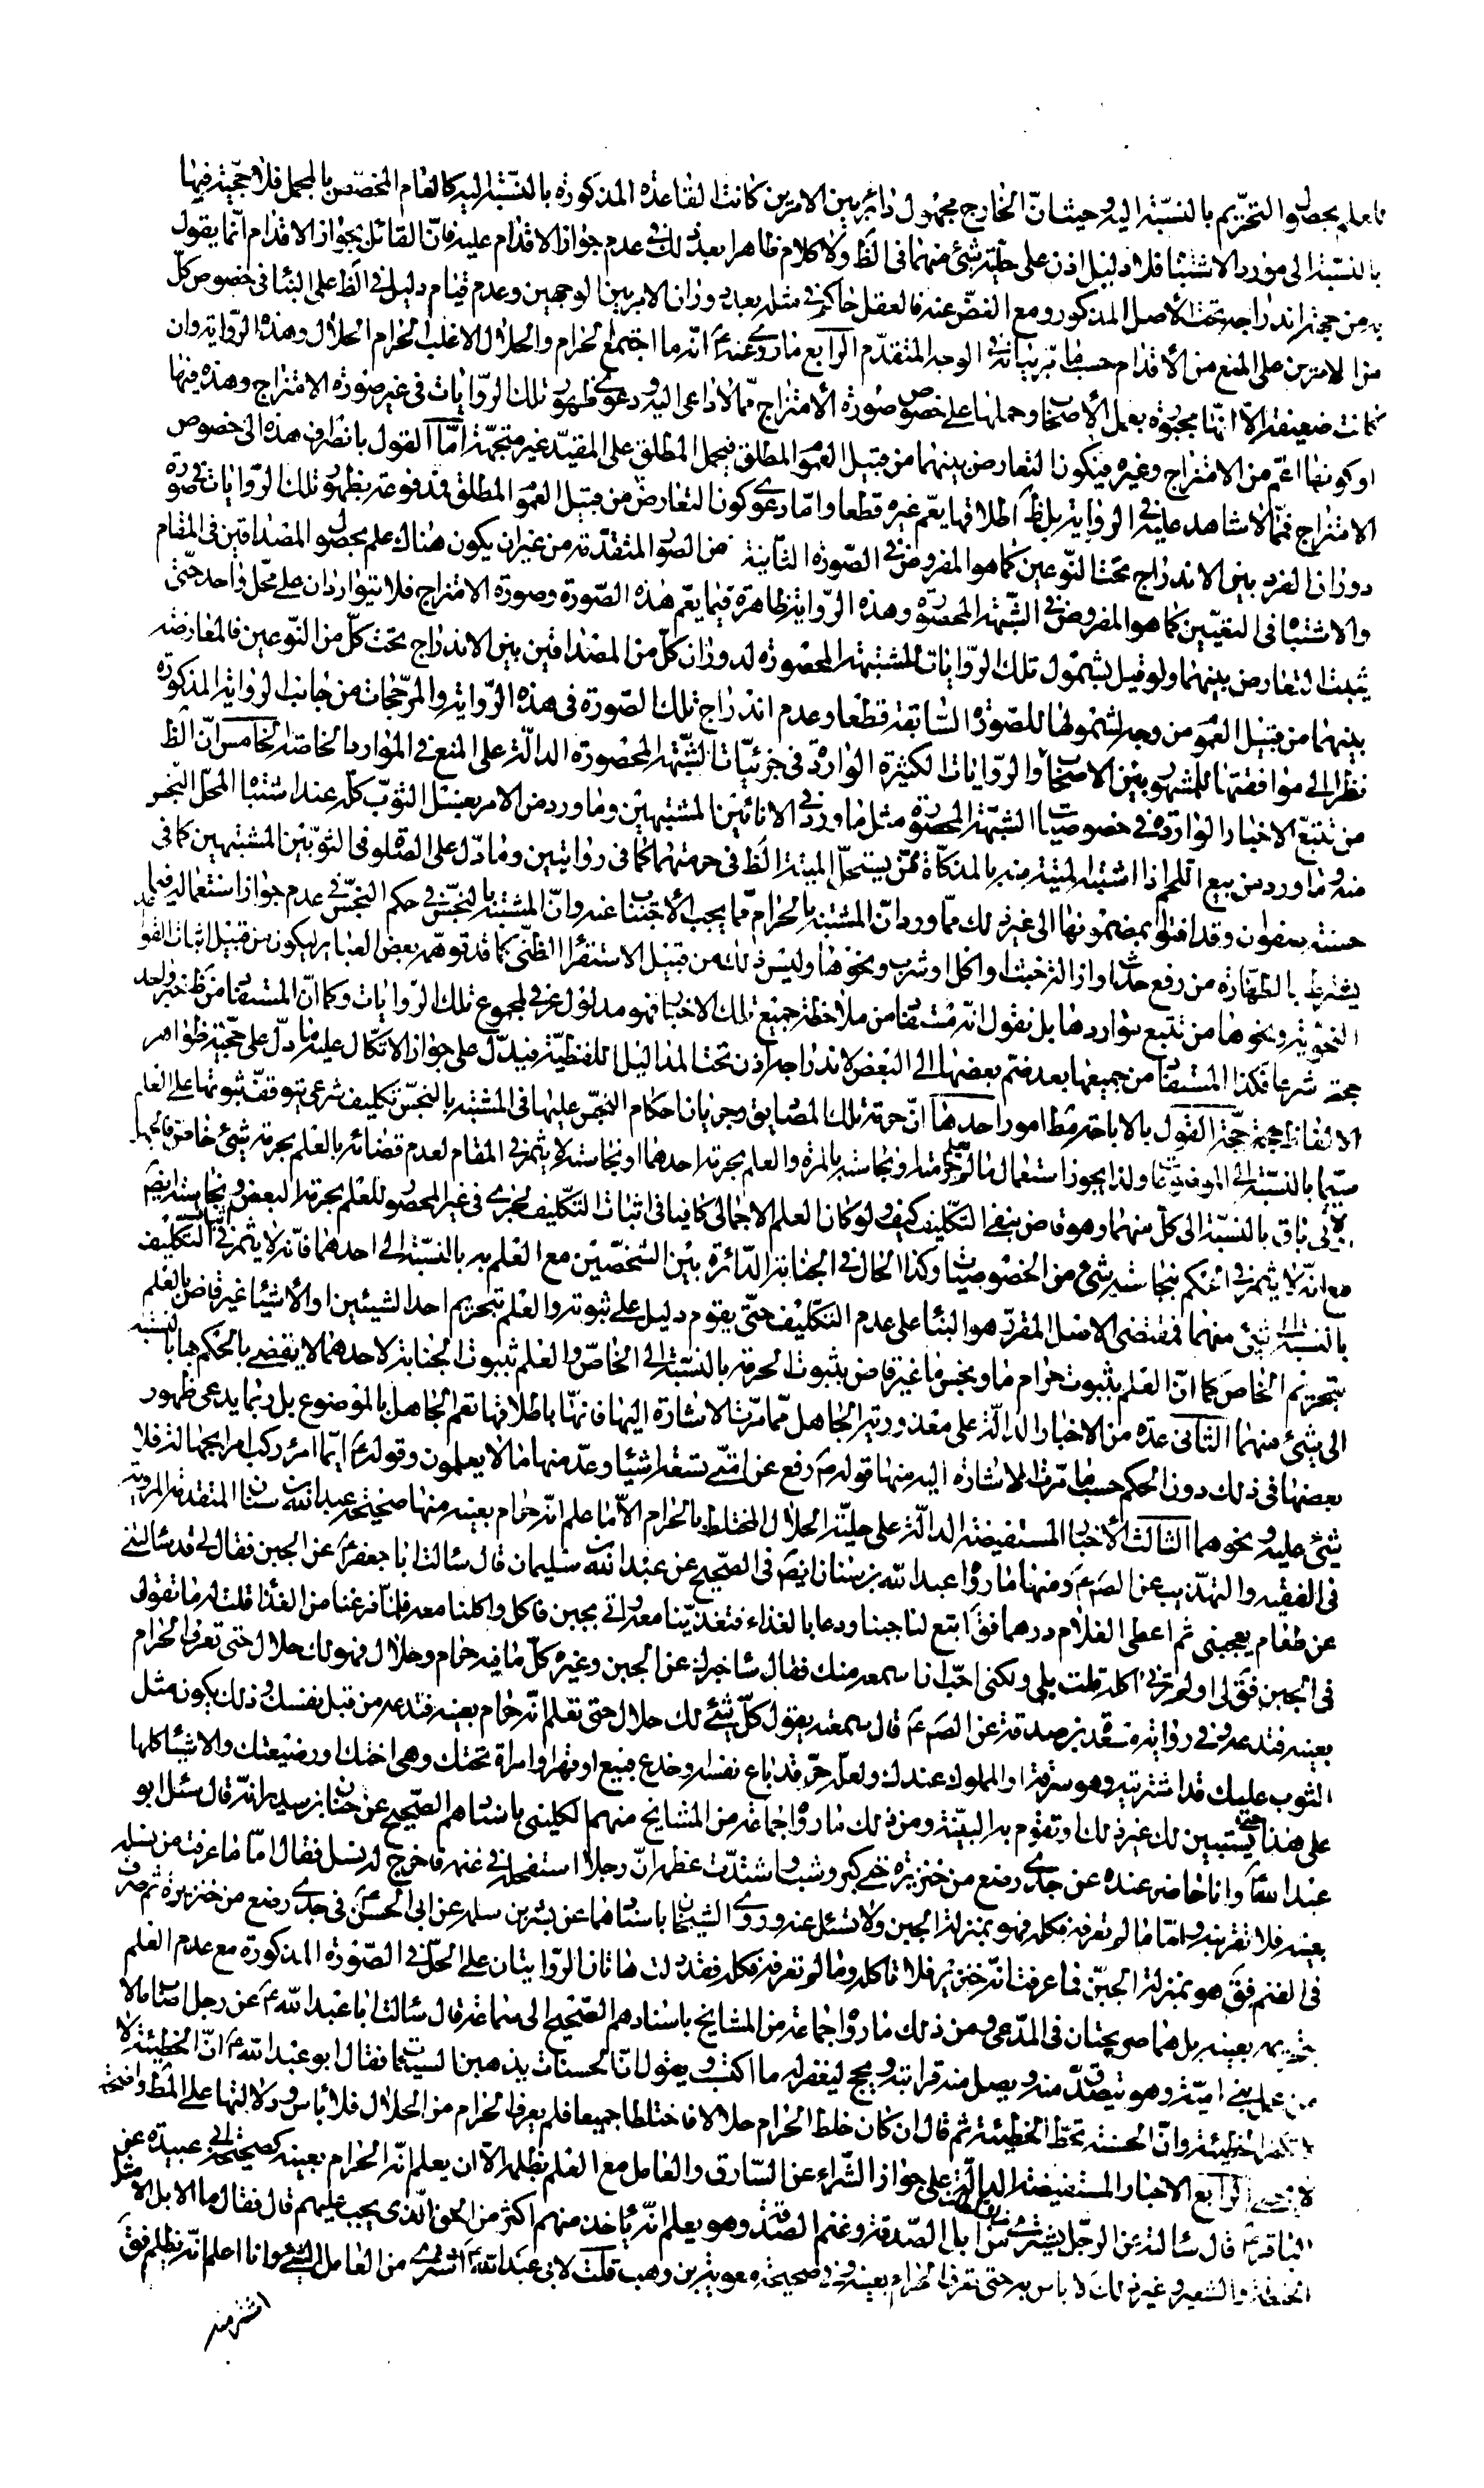 ما علم بحصول التحريم بالنسبة اليه وحيث انّ الخارج مجهول دائر بين الامرين كانت القاعدة المذكورة بالنسبة اليه كالعام المخصّص بالمجمل فلا حجّية فيها
بالنسبة الى مورد الاشتباه فلا دليل اذن على حلّية شئ منهما فى الظّ ولا كلام ظاهرا بعد ذلك فى عدم جواز الاقدام عليه فانّ القائل بجواز الاقدام انّما يقول
به من جهة اندراجه تحت الأصل المذكور ومع الغضّ عنه فالعقل حاكم فى مثله بعد دوران الامر بين الوجهين وعدم قيام دليل فى الظّ على البناء فى خصوص كلّ
من الامرين على المنع من الأقدام حسبما مرّ بيانه فى الوجه المتقدّم الرابع ما روى عنه عَ انّه ما اجتمع الحرام والحلال الا غلب الحرام الحلال وهذه الرّواية وان
كانت ضعيفة الّا انّها مجبورة بعمل الأصحاب وحملها على خصوص صورة الأمتزاج ممّا لا داعى اليه ودعوى ظهور تلك الرّوايات فى غير صورة الامتزاج وهذه فيها
او كونها اعمّ من الامتزاج وغيره فيكون التعارض بينهما من قبيل العموم المطلق فيحمل المطلق على المقيّد غير متجهة امّا القول بانصراف هذه الى خصوص
الامتزاج فممّا لا شاهد عليه فى الرواية بل ظَ اطلاقها يعّم غيره قطعا وامّا دعوى كون التعارض من قبيل العموم المطلق فمدفوعة بظهور تلك الرّوايات بصورة
دوران الفرد بين الاندراج تحت النّوعين كما هو المفروض فى الصّورة الثّانية من الصور المتقدّمة من غير ان يكون هناك علم بحصول المصداقين فى المقام
والاشتباه فى التعيّين كما هو المفروض فى الشّبهة المحصورة وهذه الرّواية ظاهرة فيما يعّم هذه الصّورة وصورة الامتزاج فلا يتواردان على محلّ واحد حتّى
يثبت التعارض بينهما ولو قيل بشمول تلك الرّوايات للمشتبهة المحصورة لدوران كلّ من المصداقين بين الاندراج تحت كلّ من النّوعين فالمعارضة
بينهما من قبيل العموم من وجه لشمولها للصورة السّابقة قطعا وعدم اندراج تلك الصّورة فى هذه الرّواية والمرّجحات من جانب الرّواية المذكورة
نظرا الى موافقتها للمشهور بين الاصحاب والرّوايات الكثيرة الواردة فى جزئيّات الشّبهة المحصورة الدالّة على المنع فى الموارد الخاصّة الخامس انّ الظّ
من تتبّع الاخبار الواردة فى خصوصيّات الشّبهة المحصورة مثل ما ورد فى الانائين المشتبهين وما ورد من الامر بغسل الثوب كلّه عند اشتباه المحلّ النّجس
منه وما ورد من بيع اللحم اذا اشتبه الميتة منه بالمذكّاة ممّن يستحلّ الميتة الظّ فى حرمتهما كما فى روايتين وما دلّ على الصّلوة فى الثوبين المشتبهين كما فى
حسنة صفوان وقد افتوا بمضمونها الى غير ذلك ممّا ورد انّ المشتبه بالحرام ممّا يجب الأجتناب عنه وانّ المشتبه بالنّجس فى حكم النّجس فى عدم جواز استعماله فيما
يشترط بالطّهارة من رفع حدث او ازالة خبث او اكل او شرب ونحوها وليس ذلك من قبيل الاستقراء الظنّى كما قد توهّمه بعض العبائر ليكون من قبيل اثبات القواعد
النحوية ونحوها من تتبع مواردها بل نقول انّه مستفاد من ملاحظة جميع تلك الاخبار فهو مدلول عرفى لمجموع تلك الرّوايات وكما انّ المستفاد من ظَ خبر واحد
حجة شرعا فكذا المستفاد من جميعها بعد ضّم بعضها الى البعض لاندراجه اذن تحت المداليل اللفظيّة فيدلّ على جواز الاتّكال عليه ما دلّ على حجّية ظواهر
الالفاظ حجّة القول بالاباحة مطَ امور احدها انّ حرمة تلك المصاديق وجريان احكام النّجس عليها فى المشتبه بالنّجس تكليف شرعى يتوقّف ثبوتها على العلم
سيّما بالنّسبة الى الموضوعات ولذا يجوز استعمال ما لم يعلم حرمته ونجاسته بالمرّة والعلم بحرمة احدهما او نجاسته لا يثمر فى المقام لعدم قضائه بالعلم بحرمة شئ خاصّ فالجهل
باق بالنّسبة الى كلّ منهما وهو قاض بنفى التكليف كيف ولو كان العلم الاجمالى كافيا فى اثبات التكليف لجرى فى غير المحصور للعلم بحرمة البعض ونجاسته ايضَ
مع انّه لا يثمر فى الحكم بنجاسة شئ من الخصوصيّات وكذا الحال فى الجنابة الدّائرة بين الشّخصين مع العلم به بالنّسبة الى احدهما فانّه لا يثمر فى اثبات التّكليف
بالنّسبة الى شئ منهما فمقتضى الاصل المقرّر هو البناء على عدم التّكليف حتّى يقوم دليل على ثبوته والعلم بتحريم احد الشيئين او الأشياء غير قاض بالعلم
بتحريم الخاصّ كما انّ العلم بثبوت حرام ما ونجس ما غير قاض بثبوت الحرمة بالنّسبة الى الخاصّ والعلم بثبوت الجنابة لاحدهما لا يقضى بالحكم بها بالنّسبة
الى شئ منهما الثّانى عدّة من الاخبار الدّالّة على معذوريّة الجاهل ممّا مرّت الاشارة اليها فانّها باطلاقها تعم الجاهل بالموضوع بل ربّما يدعى ظهور
بعضها فى ذلك دون الحكم حسبما مرّت الاشارة اليه منها قوله عَ رفع عن امّتى تسعة اشياء وعدّ منها ما لا يعلمون وقوله عَ ايّما امرئ ركب امرا بجهالة فلا
شئ عليه ونحوهما الثّالث الأخبار المستفيضة الدالّة على حليّة الحلال المختلط بالحرام الّا ما علم انّه حرام بعينه منها صحيحة عبد اللّه بن سنان المتقدّمة المرويّة
فى الفقيه والتهذيب عن الصَ عَ ومنها ما رواه عبد اللّه بن سنان ايضَ فى الصّحيح عن عبد اللّه بن سليمان قال سئالت ابا جعفر عَ عن الجبن فقال لى قد سئالتنى
عن طعام يعجبنى ثم اعطى الغلام درهما فقَ ابتع لنا جبنا ودعا بالغذاء فتغذّينا معه واتى بجبن فاكل واكلنا معه فلمّا فرغنا من الغذا قلت له ما تقول
فى الجبن فقَ لى اولم ترنى اكله قلت بلى ولكنى احبّ ان اسمعه منك فقال ساخبرك عن الجبن وغيره كلّ ما فيه حرام وحلال فهو لك حلال حتى تعرف الحرام
بعينه فتدعه وفى رواية مسعدة بن صدقة عن الصَ عَ قال سمعته يقول كلّ شئ لك حلال حتى تعلم انّه حرام بعينه فتدعه من قبل نفسك وذلك يكون مثل
الثوب عليك قد اشتريته وهو سرقة او المملوك عندك ولعلّه حرّ قد باع نفسه او خدع فبيع او قهر او امراة تحتك وهى اختك او رضيعتك والاشياء كلها
على هذا حتّى يستبين لك غير ذلك او تقوم به البيّنة ومن ذلك ما رواه جماعة من المشايخ منهم الكلينى باسنادهم الصّحيح عن حنان بن سدير انّه قال سئل ابو
عبد اللّه عَ وانا حاضر عنده عن جدى رضع من خنزيرة حتّى كبر وشبّ واشتدّت عظمه انّ رجلا استفحله فى غنمه فاخرج له نسل فقال امّا ما عرفت من نسله
بعينه فلا تقربنه وامّا ما لم تعرفه فكله فهو بمنزلة الجبن ولا تسئل عنه وروى الشيخان باسنادهما عن بشر بن سلمة عن ابى الحسن عَ فى جدى رضع من خنزيرة ثم ضرب
فى الغنم فقَ هو بمنزلة الجبّن فما عرفت انّه خنزير فلا تاكله وما لم تعرفه فكله فقد دلت هاتان الرّوايتان على الحلّ فى الصّورة المذكورة مع عدم العلم
بتحريمه بعينه بل هما صريحتان فى المدّعى ومن ذلك ما رواه جماعة من المشايخ باسنادهم الصّحيح الى سماعة قال سئالت ابا عبد اللّه عَ عن رجل اصاب مالا
من عمل بنى اميّة وهو يتصدّق منه ويصل منه قرابته ويحج ليغفر له ما اكتسب ويقول انّ الحسنات يذهبن السيئات فقال ابو عبد اللّه عَ انّ الخطيئة لا
تكفر الخطيئة وانّ الحسنة تحطّ الخطيئة ثم قال ان كان خلط الحرام حلالا فاختلطا جميعا فلم يعرف الحرام من الحلال فلا بأس ودلالتها على المطَ واضحة
لا تخفى الرّابع الاخبار المستفيضة الدالّة على جواز الشّراء عن السّارق والعامل مع العلم بظلمه الّا ان يعلم انّه الحرام بعينه كصحيحة ابى عبيدة عن
الباقر عَ قال سئالته عن الرجل يشترى من السلطان من ابل الصّدقة وغنم الصّدقة وهو يعلم انّه يأخذ منهم اكثر من الحق الّذى يجب عليهم قال فقال ما الابل الا مثل
الحنطة والشعير وغير ذلك لا باس به حتى تعرف الحرام بعينه وفى صحيحة معوية بن وهب قلت لابى عبد اللّه عَ اشترى من العامل الشئ وانا اعلم انّه يظلم فقَ
اشتر منه